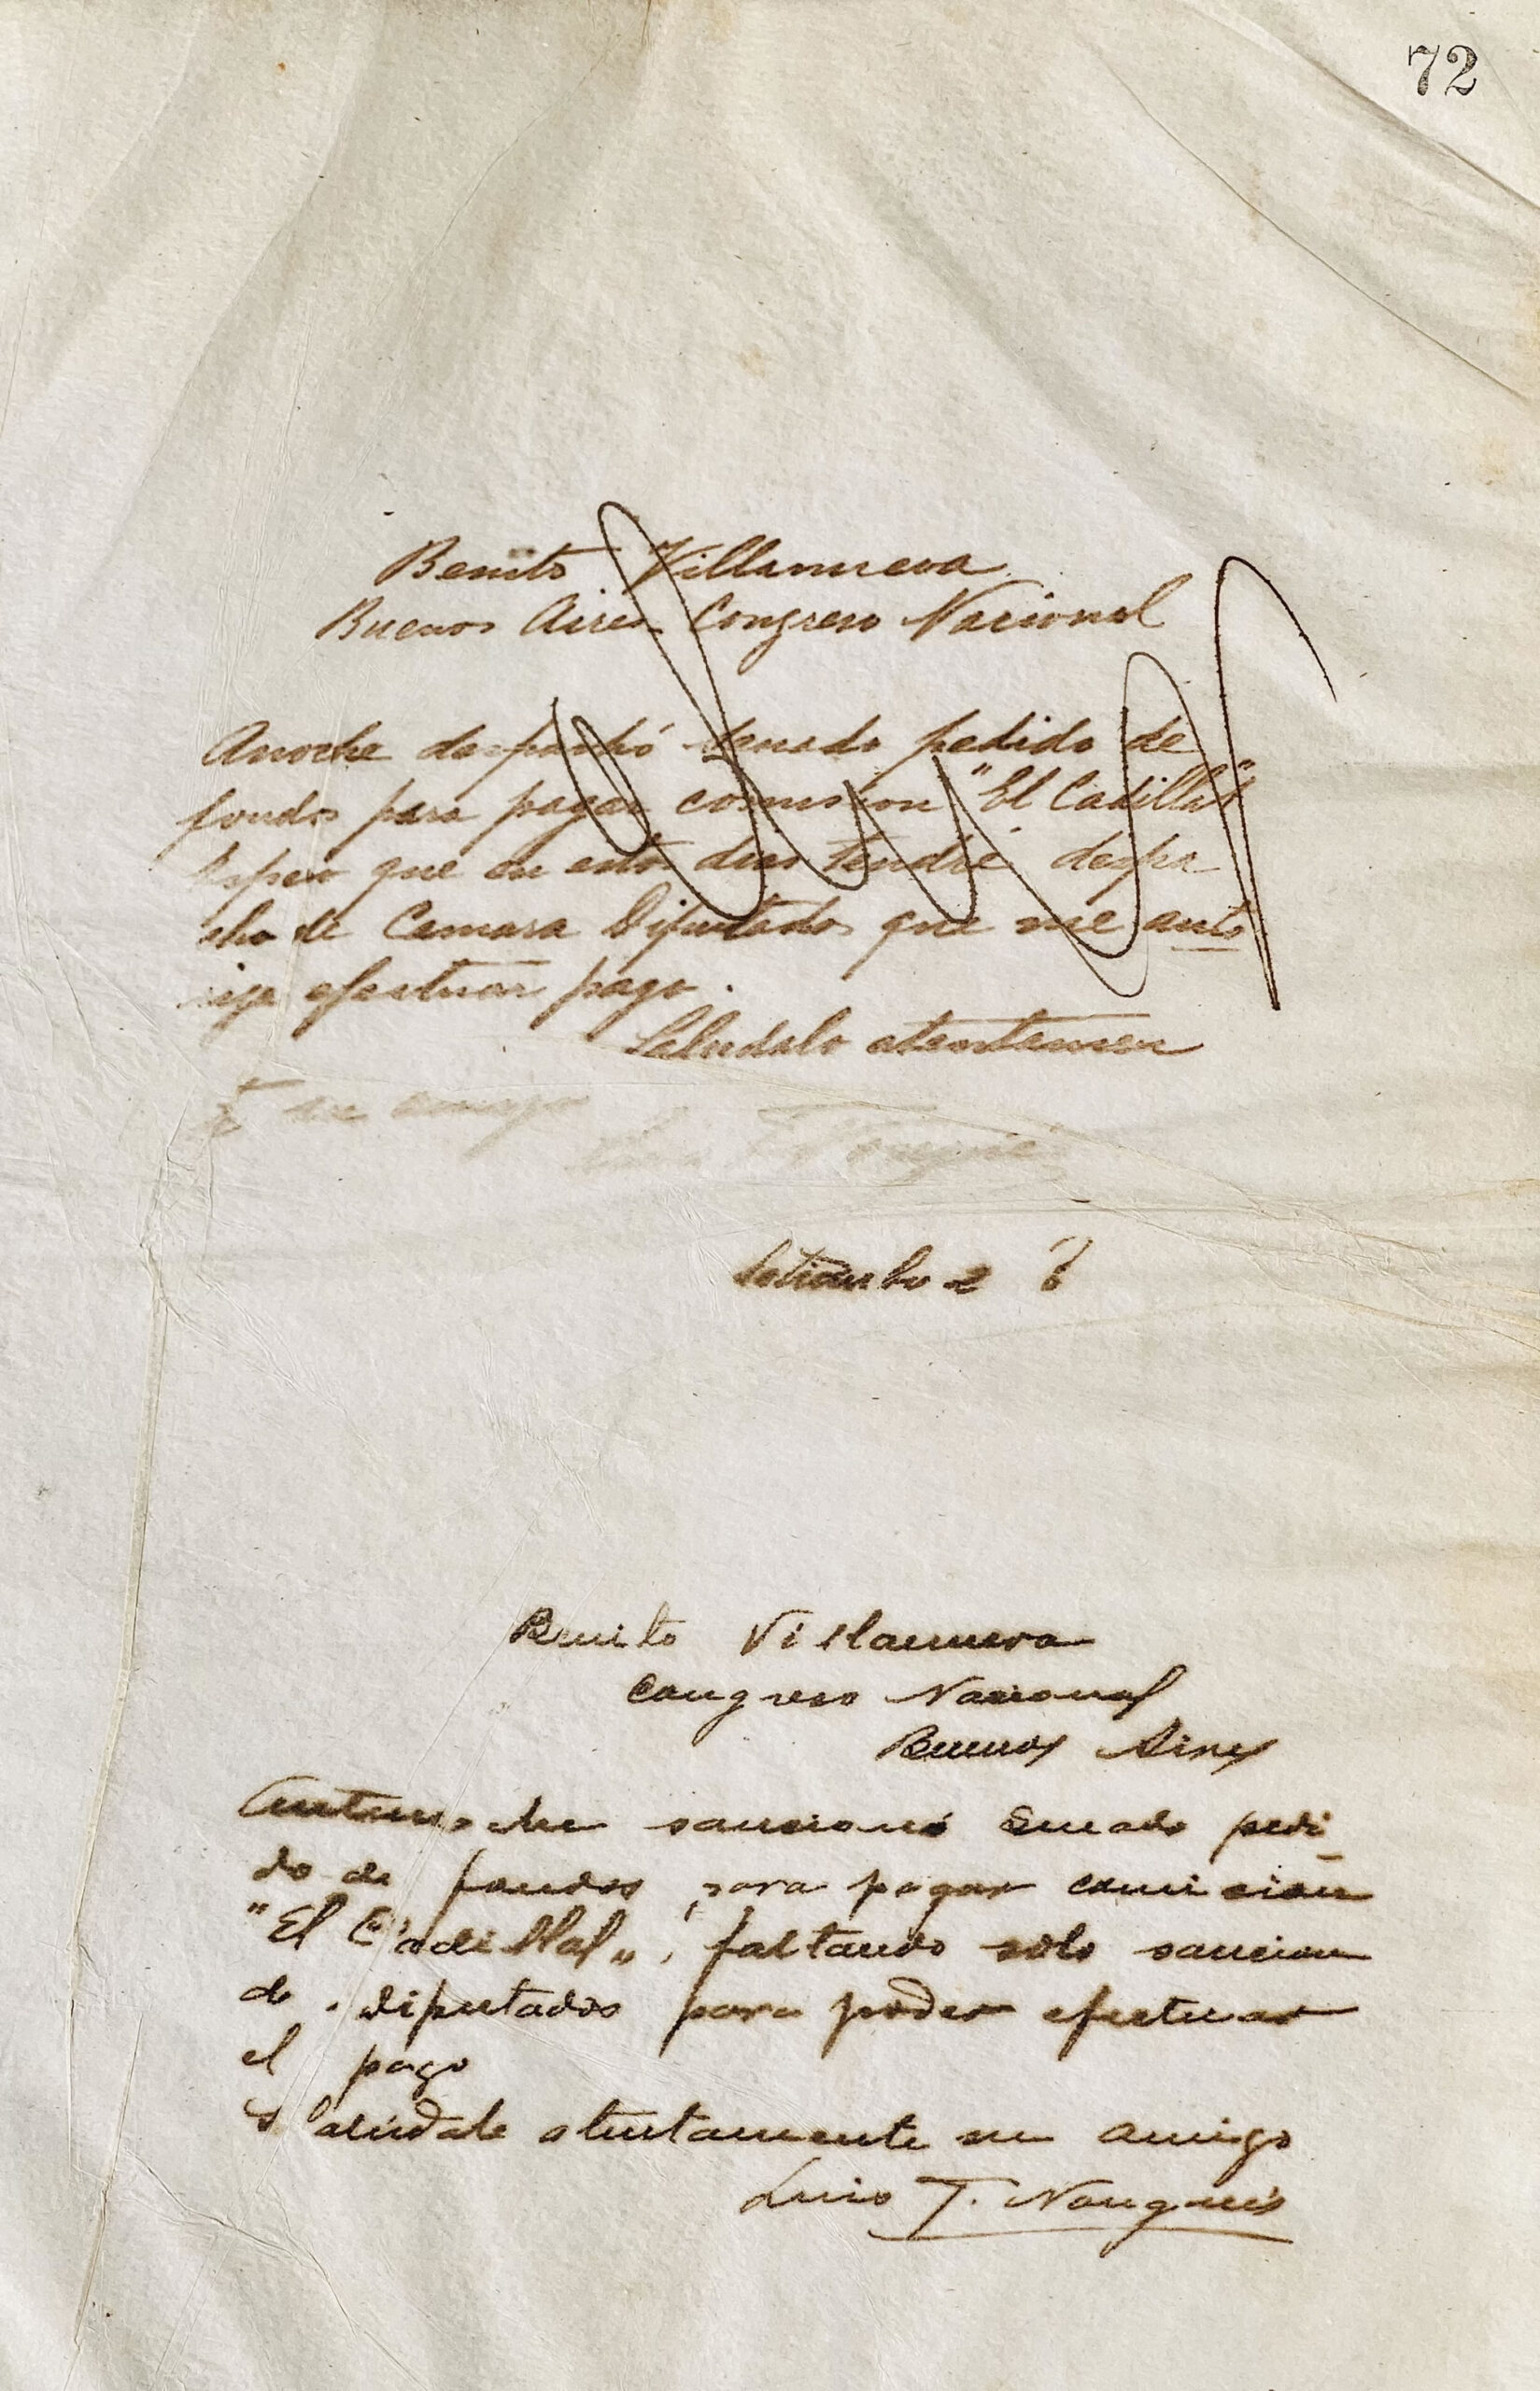 72
Benito Villanueva
Buenos Aires Congreso Nacional
Anoche despachó senado pedido de
fondos para pagar comision "El Cadillal"
Espero que en estos dias tendré despa
cho de Camara Diputados que me auto
rize efectuar pago.
Saludalo atentamen
te su amigo
Setiembre 2
Benito Villanueva
Congreso Nacional
Buenos Aires
Antenoche sancionó Senado pedi_
do de fondos para pagar comision
"El Cadillal", faltando solo sancion
de Diputados para poder efectuar
el pago
Saludale atentamente su amigo
Luis F. Nougués